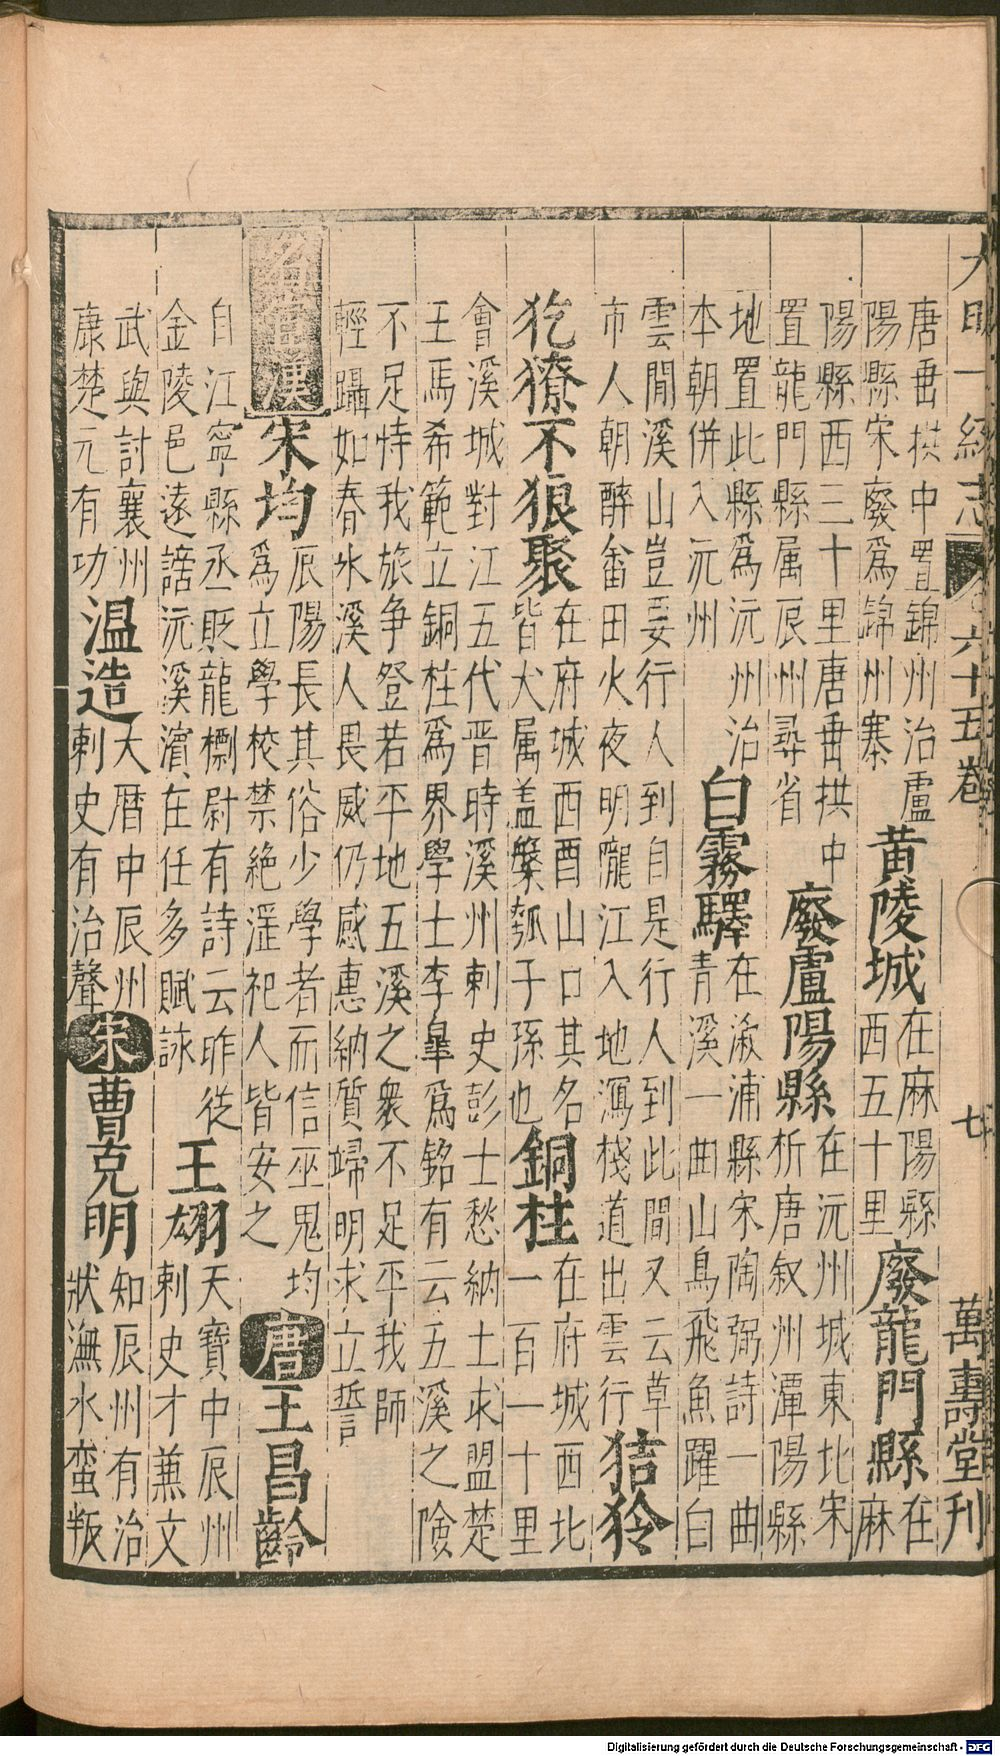 大明一統志 六十五卷 七 萬壽堂刊
唐垂拱中置錦州治盧
陽縣宋廢爲錦州寨
黄陵城
在麻陽縣
西五十里
廢龍門縣
在
麻
陽縣西三十里唐垂拱中
置龍門縣属辰州尋省
廢盧陽縣
在沅州城東北宋
析唐叙州潭陽縣
地置此縣爲沅州治
本朝併入沅州
白霧驛
在漵浦縣宋陶弼詩一曲
青溪一曲山鳥飛魚躍白
雲閒溪山豈要行人到自是行人到此間又云草
市人朝醉畬田火夜明隴江入地瀉棧道出雲行
狤狑
犵獠不狼聚
在府城西酉山口其名
皆犬属盖槃瓠子孫也
銅柱
在府城西北
一百一十里
會溪城對江五代晋時溪州刺史彭士愁納土求盟楚
王馬希範立銅柱爲界學士李臯爲銘有云五溪之險
不足恃我旅争登若平地五溪之衆不足平我師
輕躡如春氷溪人畏威仍感惠納質歸明求立誓
名宦漢
宋均
辰陽長其俗少學者而信巫鬼均
爲立學校禁絶淫祀人皆安之
唐
王昌齡
自江寧縣丞貶龍標尉有詩云昨從
金陵邑遠謫沅溪濵在任多賦詠
王翃
天寶中辰州
刺史才兼文
武與討襄州
康楚元有功
温造
大暦中辰州
刺史有治聲
宋
曹克明
知辰州有治
狀潕水蛮叛
Digitalisierung gefördert durch die Deutsche Forschungsgemeinschaft - DFG